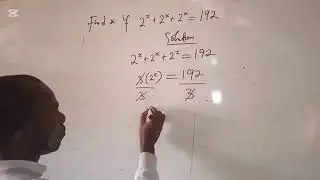 CapCut
find x if 2^x + 2^x + 2^x = 192
Solution
2^x + 2^x + 2^x = 192
3(2^x) = 192
3 3